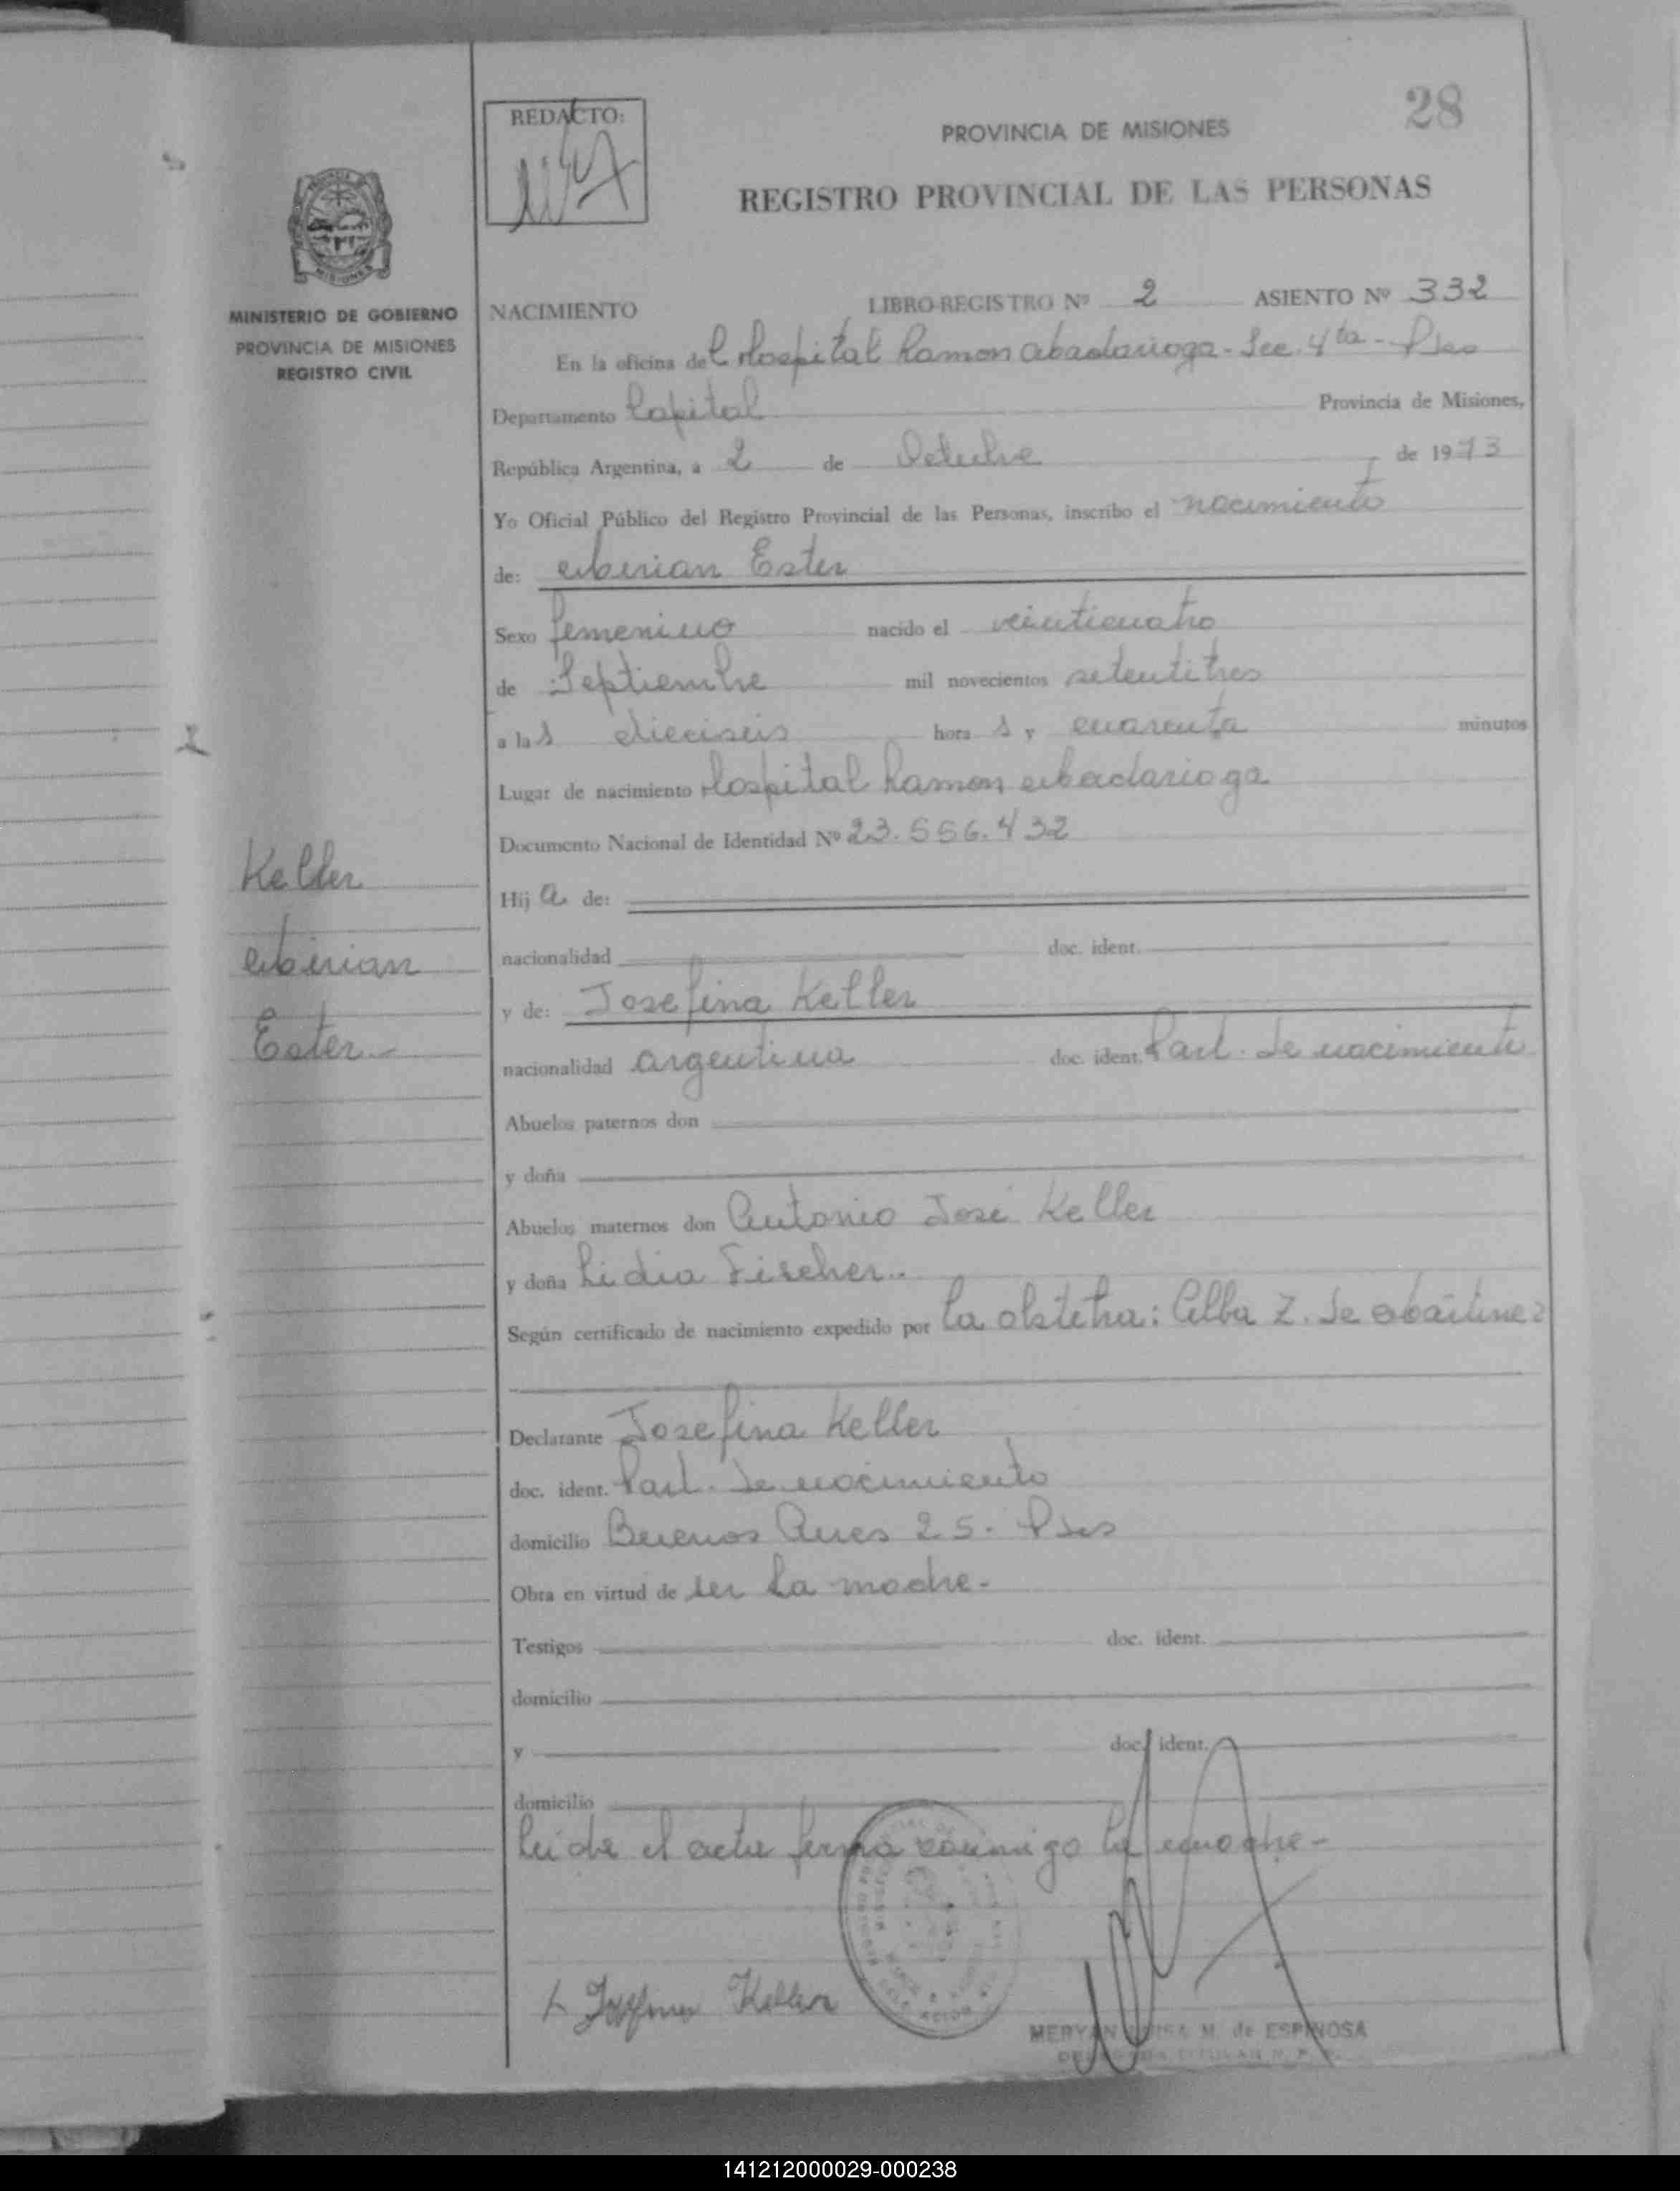 28
REDACTO:
PROVINCIA DE MISIONES
REGISTRO PROVINCIAL DE LAS PERSONAS
MISIONES
MINISTERIO DE GOBIERNO
PROVINCIA DE MISIONES
REGISTRO CIVIL
NACIMIENTO LIBRO-REGISTRO Nº 2 ASIENTO Nº 332
En la oficina del Hospital Ramon Madariaga - Sec. 4ta - Pdas
Departamento Capital Provincia de Misiones,
República Argentina, a 2 de Octubre de 1973
Yo Oficial Público del Registro Provincial de las Personas, inscribo el nacimiento
de: Mirian Ester
Sexo femenino nacido el veinticuatro
de Septiembre mil novecientos setentitres
a las dieciseis horas y cuarenta minutos
Lugar de nacimiento Hospital Ramon Madariaga
Documento Nacional de Identidad Nº 23.556.432
Keller
Mirian
Ester.-
Hija de:
nacionalidad doc. ident.
y de: Josefina Keller
nacionalidad argentina doc. ident. Part. de nacimiento
Abuelos paternos don
y doña
Abuelos maternos don Antonio José Keller
y doña Lidia Fischer..
Según certificado de nacimiento expedido por la obstetra: Alba Z. de Martinez
Declarante Josefina Keller
doc. ident. Part. de nacimiento
domicilio Buenos Aires 25. Pdas
Obra en virtud de ser la madre.-
Testigos doc. ident.
domicilio
y doc. ident.
domicilio
Leida el acta firma conmigo la madre-
Josefina Keller
MERYAN LUISA M. de ESPINOSA
141212000029-000238